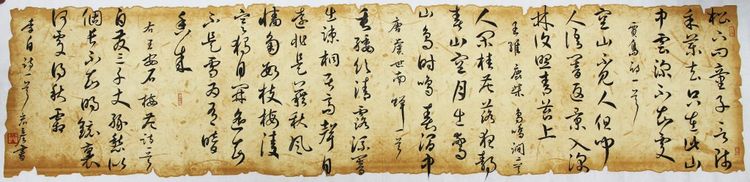 松下问童子言师
采药去只在此山
中云深不知处
贾岛诗一首
空山不见人但闻
人语响返景入深
林复照青苔上
王维鹿柴鸟鸣涧二首
人闲桂花落夜静
春山空月出惊
山鸟时鸣春涧中
唐虞世南蝉一首
垂緌饮清露流响
出疏桐居高声自
远非是藉秋风
墙角数枝梅凌
寒独自开遥知
不是雪为有暗
香来
右王安石梅花诗一首
白发三千丈缘愁似
个长不知明镜里
何处得秋霜
李白诗一首书